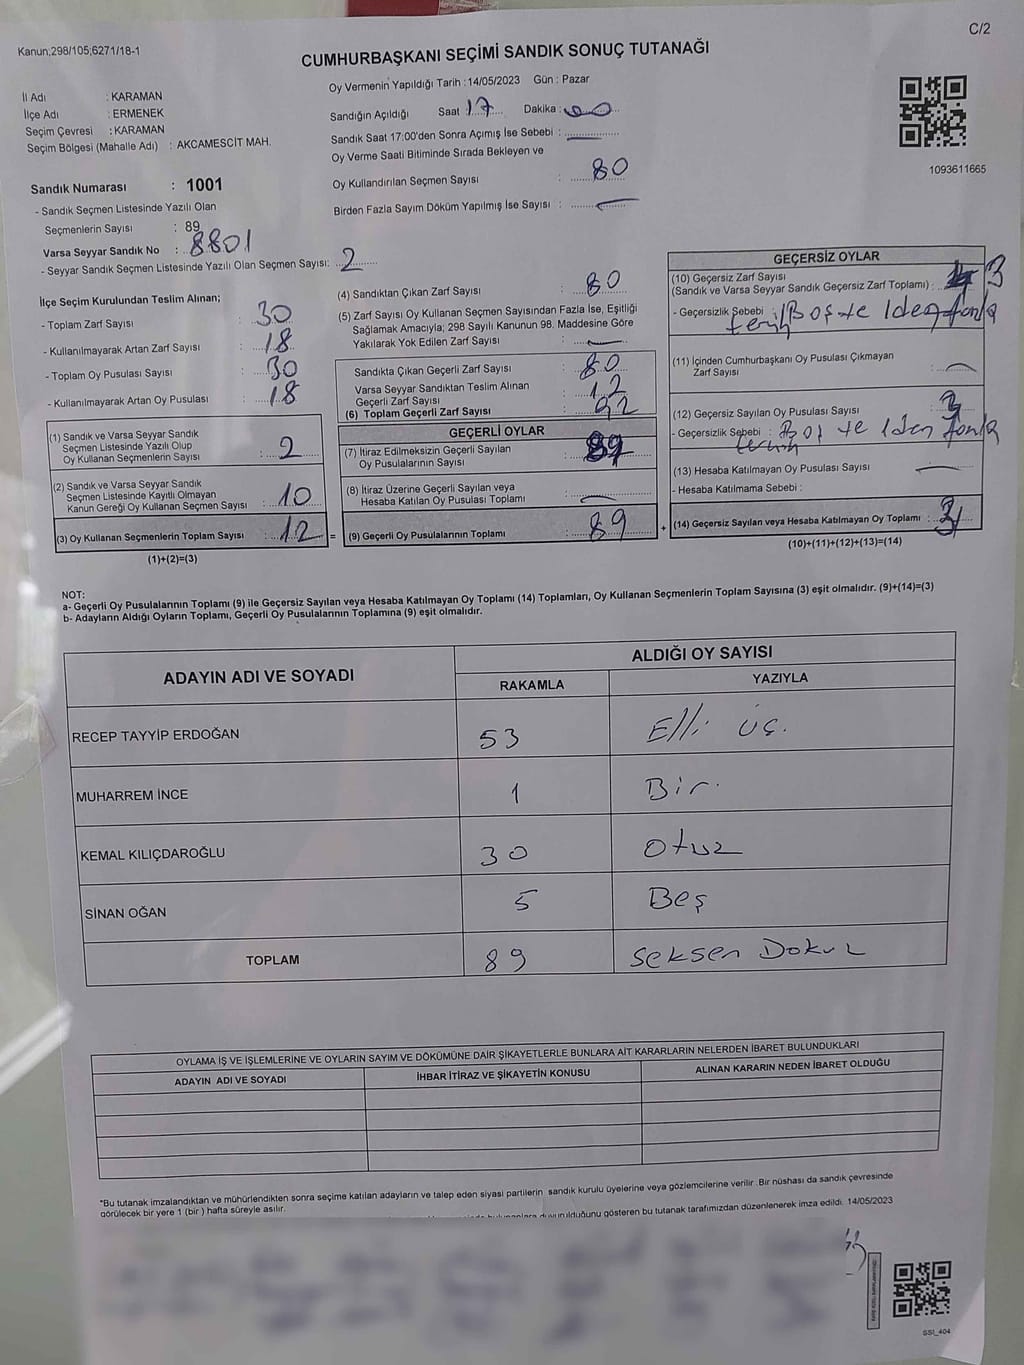 Kanun;298/105;6271/18-1
C/2
CUMHURBAŞKANI SEÇİMİ SANDIK SONUÇ TUTANAĞI
İl Adı : KARAMAN
İlçe Adı : ERMENEK
Seçim Çevresi : KARAMAN
Seçim Bölgesi (Mahalle Adı) : AKCAMESCİT MAH.
Sandık Numarası : 1001
- Sandık Seçmen Listesinde Yazılı Olan
Seçmenlerin Sayısı : 89
Varsa Seyyar Sandık No : 8801
- Seyyar Sandık Seçmen Listesinde Yazılı Olan Seçmen Sayısı: 2
Oy Vermenin Yapıldığı Tarih : 14/05/2023 Gün : Pazar
Sandığın Açıldığı Saat 17 Dakika : 00
Sandık Saat 17:00'den Sonra Açımış İse Sebebi : —
Oy Verme Saati Bitiminde Sırada Bekleyen ve
Oy Kullandırılan Seçmen Sayısı : 80
Birden Fazla Sayım Döküm Yapılmış İse Sayısı : —
1093611665
İlçe Seçim Kurulundan Teslim Alınan;
- Toplam Zarf Sayısı : 30
- Kullanılmayarak Artan Zarf Sayısı : 18
- Toplam Oy Pusulası Sayısı : 30
- Kullanılmayarak Artan Oy Pusulası : 18
(1) Sandık ve Varsa Seyyar Sandık
Seçmen Listesinde Yazılı Olup
Oy Kullanan Seçmenlerin Sayısı : 2
(2) Sandık ve Varsa Seyyar Sandık
Seçmen Listesinde Kayıtlı Olmayan
Kanun Gereği Oy Kullanan Seçmen Sayısı : 10
(3) Oy Kullanan Seçmenlerin Toplam Sayısı : 12 =
(1)+(2)=(3)
(4) Sandıktan Çıkan Zarf Sayısı : 80
(5) Zarf Sayısı Oy Kullanan Seçmen Sayısından Fazla İse, Eşitliği
Sağlamak Amacıyla; 298 Sayılı Kanunun 98. Maddesine Göre
Yakılarak Yok Edilen Zarf Sayısı : —
Sandıkta Çıkan Geçerli Zarf Sayısı : 80
Varsa Seyyar Sandıktan Teslim Alınan
Geçerli Zarf Sayısı : 12
(6) Toplam Geçerli Zarf Sayısı : 92
GEÇERLİ OYLAR
(7) İtiraz Edilmeksizin Geçerli Sayılan
Oy Pusulalarının Sayısı : 89
(8) İtiraz Üzerine Geçerli Sayılan veya
Hesaba Katılan Oy Pusulası Toplamı : —
(9) Geçerli Oy Pusulalarının Toplamı : 89 +
GEÇERSİZ OYLAR
(10) Geçersiz Zarf Sayısı
(Sandık ve Varsa Seyyar Sandık Geçersiz Zarf Toplamı) : 3
- Geçersizlik Sebebi : Boş ve 1den fazla
tercih
(11) İçinden Cumhurbaşkanı Oy Pusulası Çıkmayan
Zarf Sayısı : —
(12) Geçersiz Sayılan Oy Pusulası Sayısı : 3
- Geçersizlik Sebebi : Boş ve 1den fazla
tercih
(13) Hesaba Katılmayan Oy Pusulası Sayısı : —
- Hesaba Katılmama Sebebi :
(14) Geçersiz Sayılan veya Hesaba Katılmayan Oy Toplamı : 3
(10)+(11)+(12)+(13)=(14)
NOT:
a- Geçerli Oy Pusulalarının Toplamı (9) ile Geçersiz Sayılan veya Hesaba Katılmayan Oy Toplamı (14) Toplamları, Oy Kullanan Seçmenlerin Toplam Sayısına (3) eşit olmalıdır. (9)+(14)=(3)
b- Adayların Aldığı Oyların Toplamı, Geçerli Oy Pusulalarının Toplamına (9) eşit olmalıdır.
ADAYIN ADI VE SOYADI
ALDIĞI OY SAYISI
RAKAMLA YAZIYLA
RECEP TAYYİP ERDOĞAN 53 Elli üç.
MUHARREM İNCE 1 Bir.
KEMAL KILIÇDAROĞLU 30 Otuz
SİNAN OĞAN 5 Beş
TOPLAM 89 Seksen Dokuz
OYLAMA İŞ VE İŞLEMLERİNE VE OYLARIN SAYIM VE DÖKÜMÜNE DAİR ŞİKAYETLERLE BUNLARA AİT KARARLARIN NELERDEN İBARET BULUNDUKLARI
ADAYIN ADI VE SOYADI İHBAR İTİRAZ VE ŞİKAYETİN KONUSU ALINAN KARARIN NEDEN İBARET OLDUĞU
*Bu tutanak imzalandıktan ve mühürlendikten sonra seçime katılan adayların ve talep eden siyasi partilerin sandık kurulu üyelerine veya gözlemcilerine verilir .Bir nüshası da sandık çevresinde
görülecek bir yere 1 (bir ) hafta süreyle asılır.
duyurulduğunu gösteren bu tutanak tarafımızdan düzenlenerek imza edildi. 14/05/2023
SSI_404